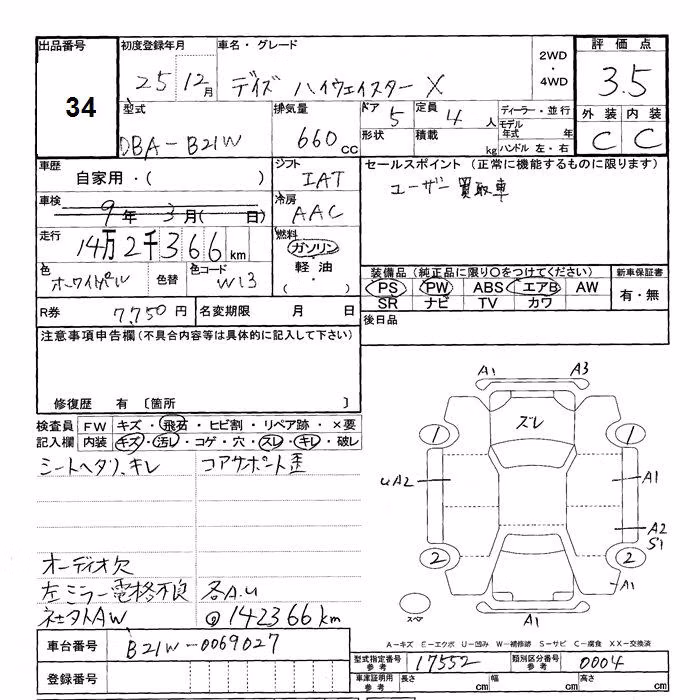 出品番号 初度登録年月 車名・グレード 2WD・4WD 評価点
34 25 12月 デイズ ハイウェイスター X 3.5
型式 排気量 ドア 5 定員 4人 ディーラー・並行 外装 内装
DBA-B21W 660cc 形状 積載 kg モデル年式 年 C C
ハンドル 左・右
車歴 シフト セールスポイント (正常に機能するものに限ります)
自家用・( ) IAT ユーザー買取車
車検 冷房
9年 3月( 日) AAC
走行 燃料
14万2千366km ガソリン
軽油
・
色 色替 色コード 装備品 (純正品に限り○をつけてください) 新車保証書
オーワイトパール W13 PS PW ABS エアB AW 有・無
SR ナビ TV カワ
R券 7,750円 名変期限 月 日 後日品
注意事項申告欄(不具合内容等は具体的に記入して下さい)
修復歴 有 〔箇所 〕
検査員 FW キズ・飛石・ヒビ割・リペア跡・×要
記入欄 内装 キズ・汚レ・コゲ・穴・スレ・キレ・破レ
シートヘタリ、キレ コアサポート歪
オーディオ欠
左ミラー電格不良 各A.U
社外AW @142366km
A1 A3
ズレ
1 1
UA2 A1
A2
S1
2 2
A1
スペア A1
A-キズ E-エクボ U-凹み W-補修跡 S-サビ C-腐食 XX-交換済
車台番号 B21W-0069027
型式指定番号 参考 17552 類別区分番号 参考 0004
登録番号 車庫証明用 参考 長さ cm 幅 cm 高さ cm